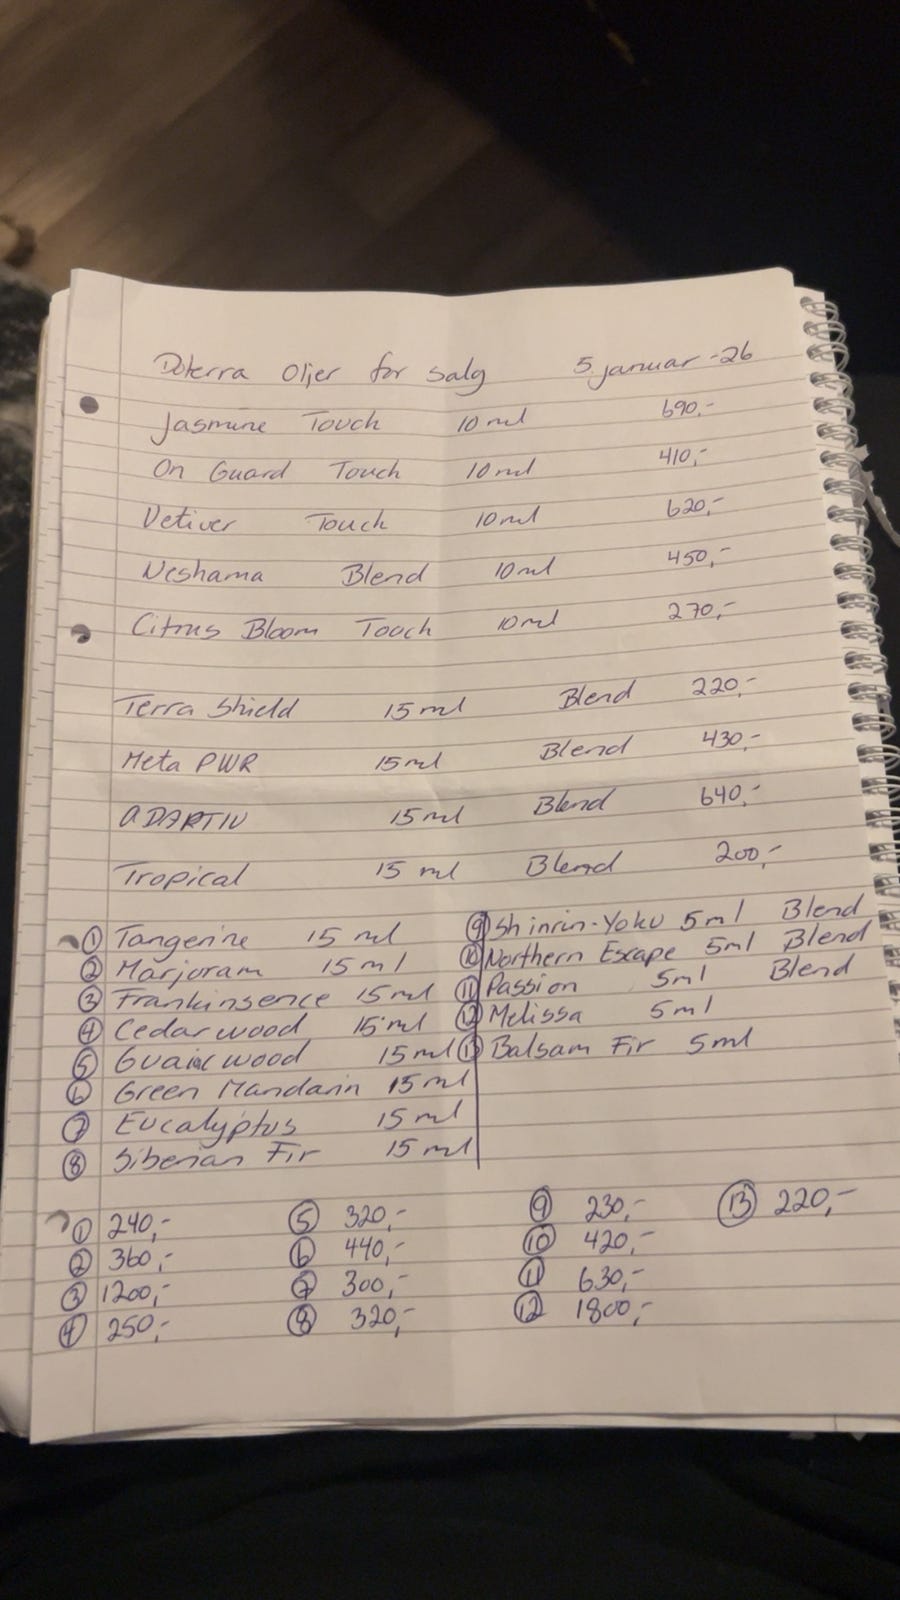 Doterra Oljer for salg 5. januar -26
Jasmine Touch 10 ml 690,-
On Guard Touch 10 ml 410,-
Vetiver Touch 10 ml 620,-
Neshama Blend 10 ml 450,-
Citrus Bloom Touch 10 ml 270,-
Terra Shield 15 ml Blend 220,-
Meta PWR 15 ml Blend 430,-
ADAPTIV 15 ml Blend 640,-
Tropical 15 ml Blend 200,-
① Tangerine 15 ml
② Marjoram 15 ml
③ Frankinsence 15 ml
④ Cedar wood 15 ml
⑤ Guaiac wood 15 ml
⑥ Green Mandarin 15 ml
⑦ Eucalyptus 15 ml
⑧ Siberian Fir 15 ml
⑨ Shinrin-Yoku 5 ml Blend
⑩ Northern Escape 5 ml Blend
⑪ Passion 5 ml Blend
⑫ Melissa 5 ml
⑬ Balsam Fir 5 ml
① 240,- ⑤ 320,- ⑨ 230,- ⑬ 220,-
② 360,- ⑥ 440,- ⑩ 420,-
③ 1200,- ⑦ 300,- ⑪ 630,-
④ 250,- ⑧ 320,- ⑫ 1800,-